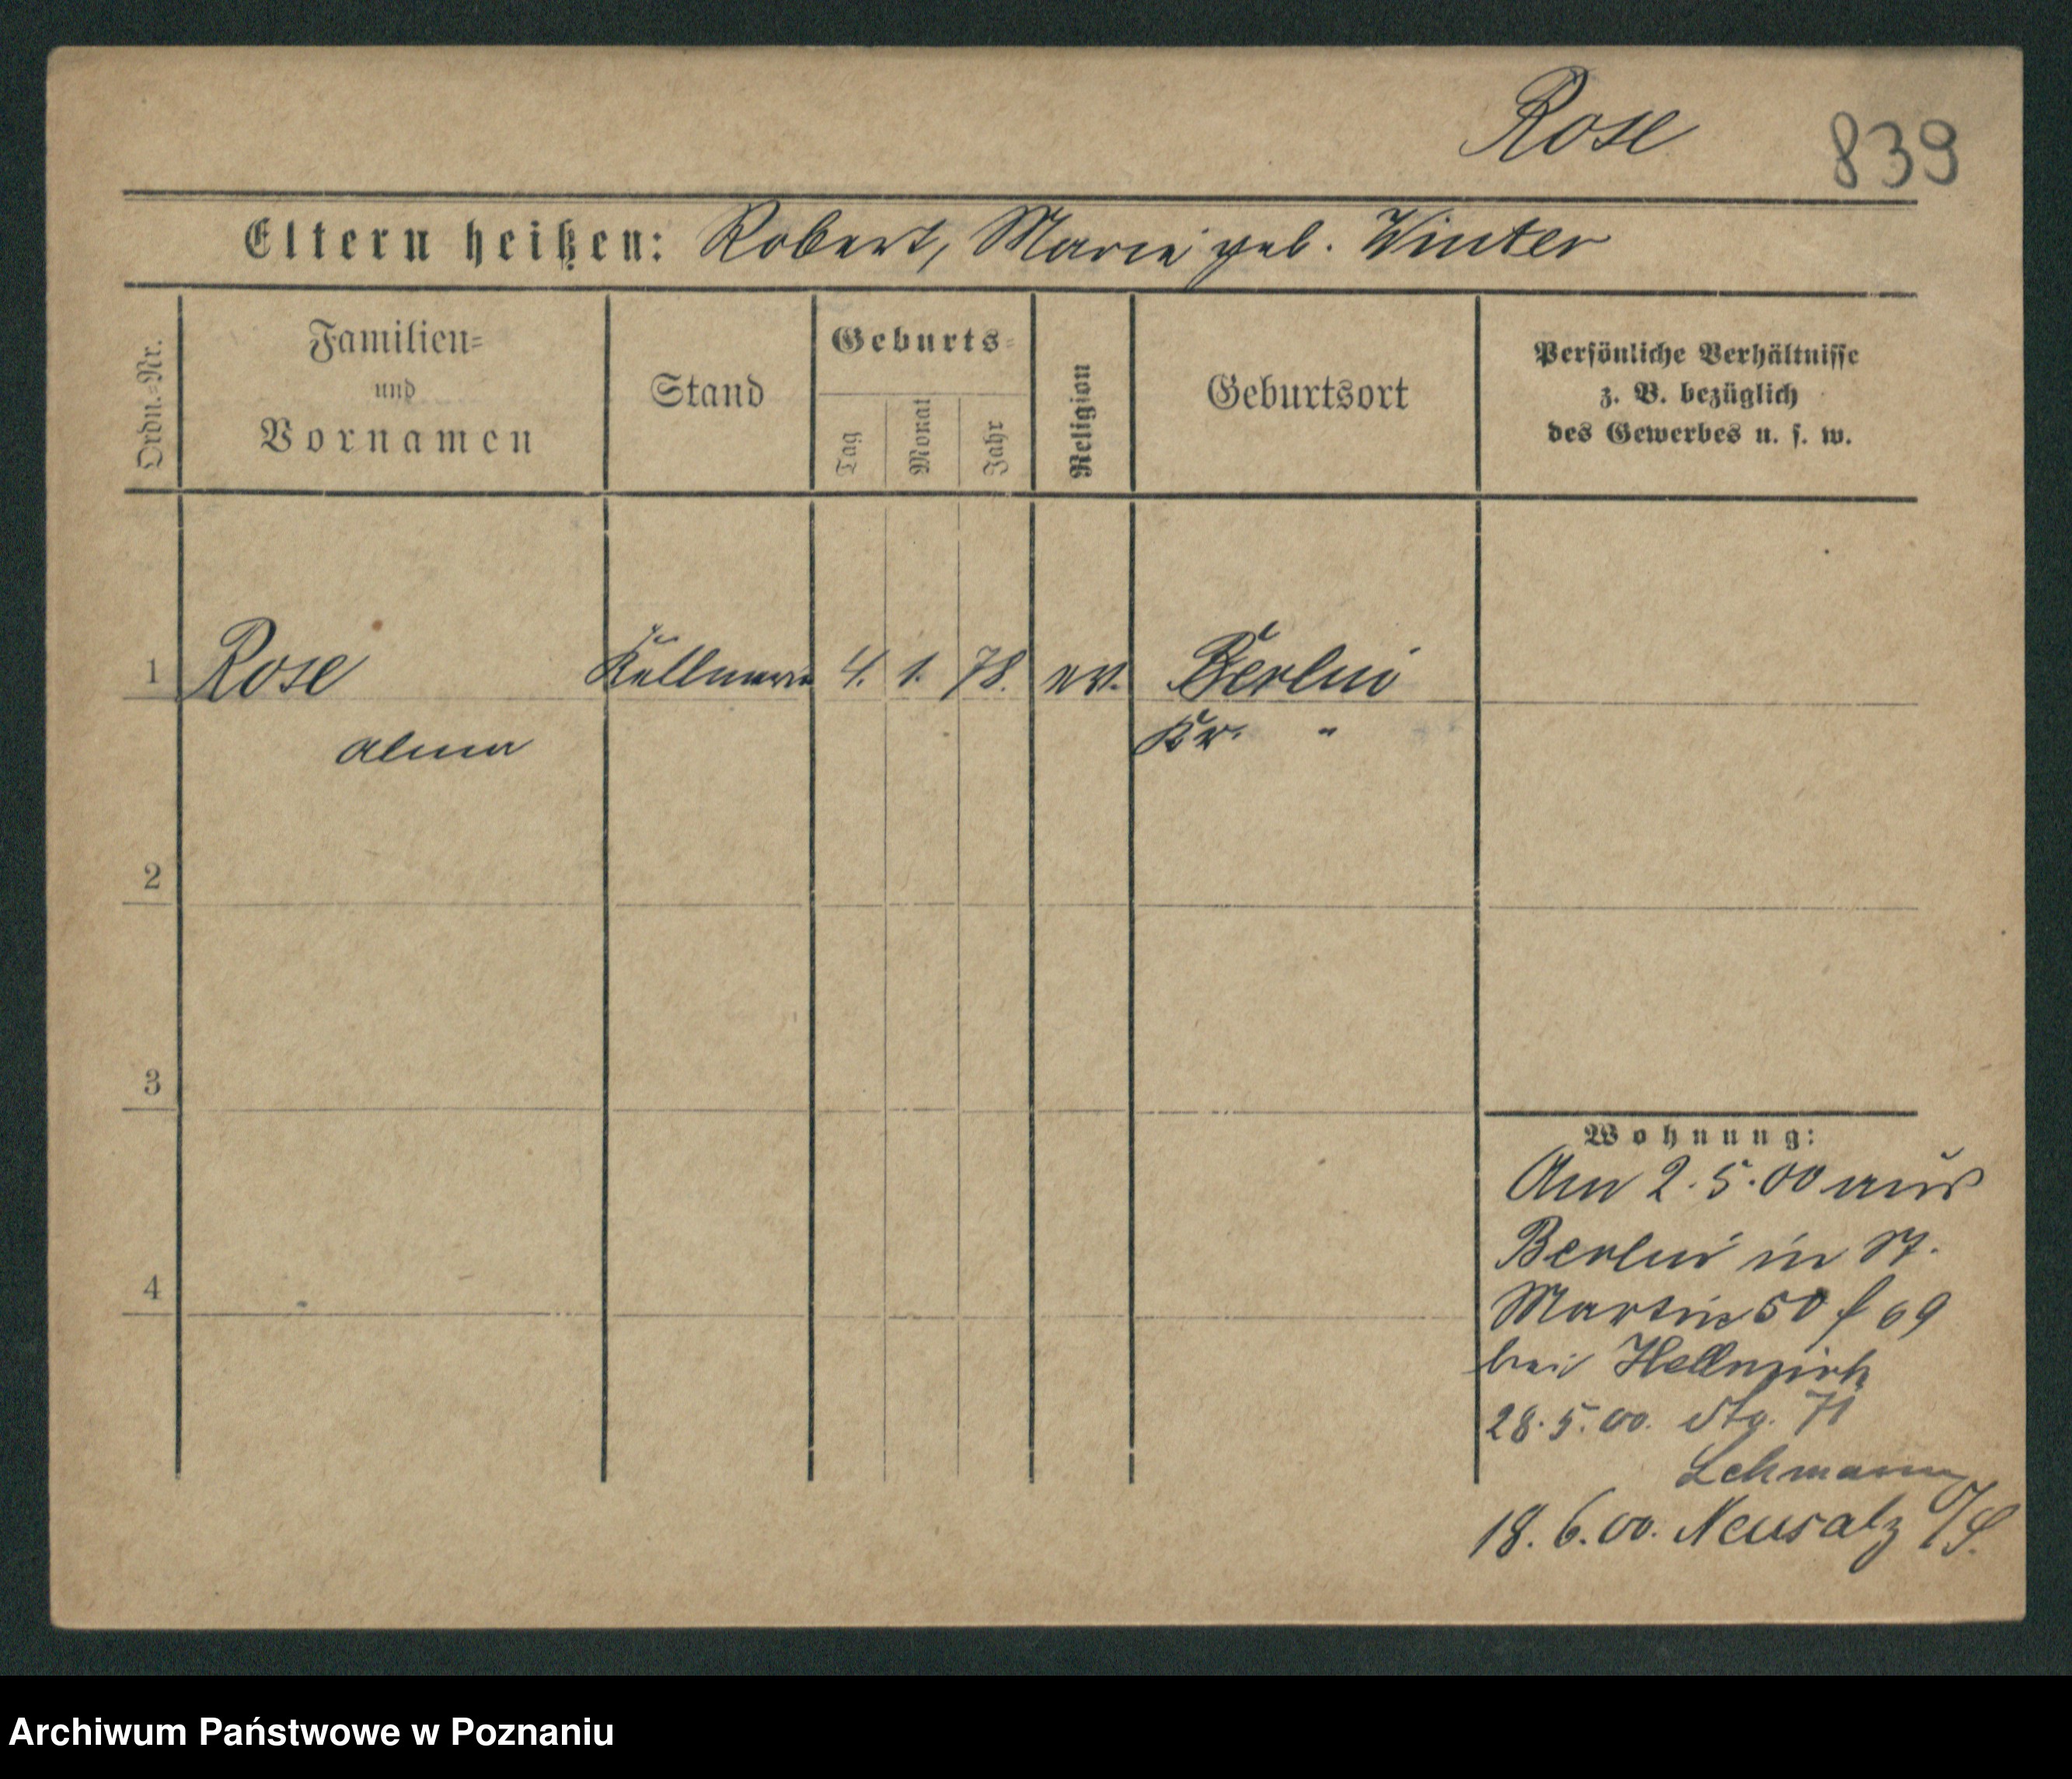 Rose 839
Eltern heißen: Robert, Marie geb. Winter
Ordn.-Nr.
Familien-
und
Vornamen
Stand
Geburts-
Tag
Monat
Jahr
Religion
Geburtsort
Persönliche Verhältnisse
z. B. bezüglich
des Gewerbes u. s. w.
1 Rose Kellnerin 4. 1. 78. ev. Berlin
Alma Kr. "
2
3
4
Wohnung:
Am 2.5.00 aus
Berlin in St.
Martin 50 f 69
bei
28.5.00. dto. 71
Lehmann
18.6.00. Neusalz O/S.
Archiwum Państwowe w Poznaniu